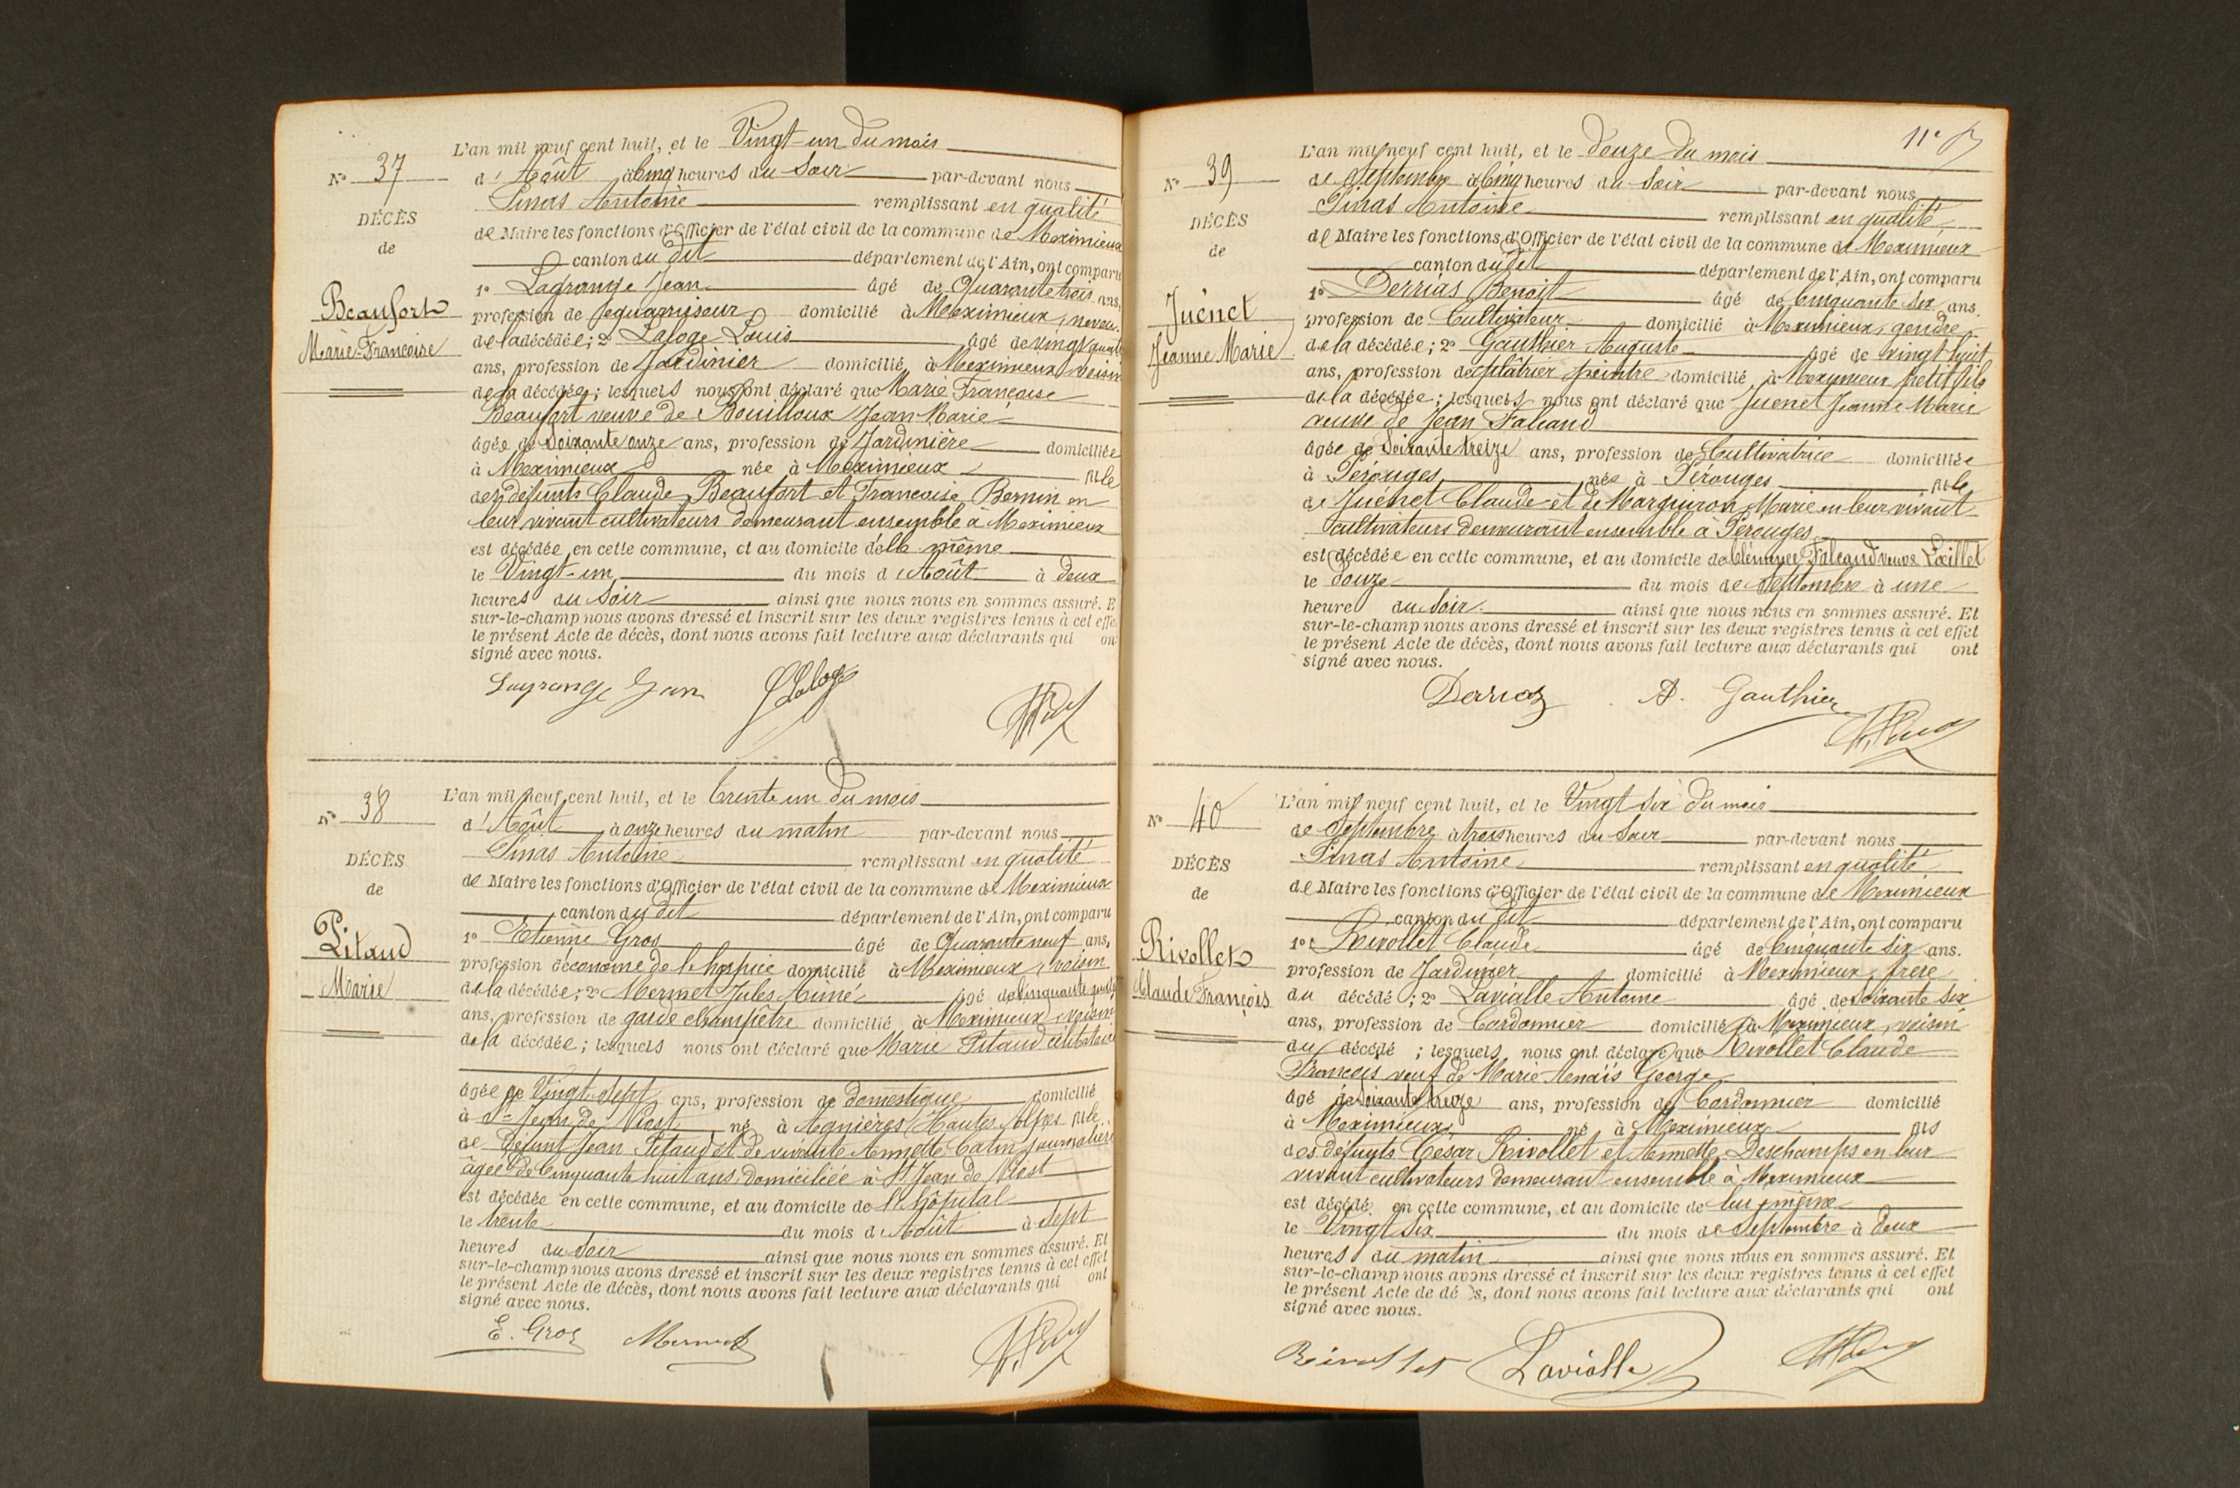 N° 37
DÉCÈS
de
Beaufort
Marie-Françoise
L'an mil neuf cent huit, et le Vingt-un du mois
d'Août à Cinq heures du Soir par-devant nous
Pinas Antoine remplissant en qualité
de Maire les fonctions d'Officier de l'état civil de la commune de Meximieux
canton du dit département de l'Ain, ont comparu
1° Lagrange Jean âgé de Quarante trois ans,
profession de domicilié à Meximieux, neveu
de la décédée; 2° Laloge Louis âgé de vingt quatre
ans, profession de Jardinier domicilié à Meximieux voisin
de la décédée; lesquels nous ont déclaré que Marie Françoise
Beaufort veuve de Bouilloux Jean Marie
âgée de Soixante onze ans, profession de Jardinière domiciliée
à Meximieux née à Meximieux fille
des défunts Claude Beaufort et Françoise Bernin en
leur vivant cultivateurs demeurant ensemble à Meximieux
est décédée en cette commune, et au domicile d'elle même
le Vingt-un du mois d'Août à deux
heures du Soir ainsi que nous nous en sommes assuré. E
sur-le-champ nous avons dressé et inscrit sur les deux registres tenus à cet effe
le présent Acte de décès, dont nous avons fait lecture aux déclarants qui on
signé avec nous.
Lagrange Jean Laloge
N° 38
DÉCÈS
de
Pitaud
Marie
L'an mil neuf cent huit, et le trente un du mois
d'Août à onze heures du matin par-devant nous
Pinas Antoine remplissant en qualité
de Maire les fonctions d'Officier de l'état civil de la commune de Meximieux
canton du dit département de l'Ain, ont comparu
1° Etienne Gros âgé de Quarante neuf ans,
profession d'économe de l'hospice domicilié à Meximieux, voisin
de la décédée; 2° Mermet Jules Aimé âgé de Cinquante
ans, profession de garde champêtre domicilié à Meximieux voisin
de la décédée; lesquels nous ont déclaré que Marie Pitaud célibataire
âgée de Vingt-sept ans, profession de domestique domicilié
à St Jean de Niost né à Agnières Hautes Alpes fille
de défunt Jean Pitaud et de vivante Annette Catin journalière
âgée de Cinquante huit ans domiciliée à St Jean de Niost
est décédée en cette commune, et au domicile de l'hôpital
le trente du mois d'Août à Sept
heures du Soir ainsi que nous nous en sommes assuré. Et
sur-le-champ nous avons dressé et inscrit sur les deux registres tenus à cet effet
le présent Acte de décès, dont nous avons fait lecture aux déclarants qui ont
signé avec nous.
E. Gros Mermet
11e
N° 39
DÉCÈS
de
Juénet
Jeanne Marie
L'an mil neuf cent huit, et le douze du mois
de Septembre à Cinq heures du Soir par-devant nous
Pinas Antoine remplissant en qualité
de Maire les fonctions d'Officier de l'état civil de la commune de Meximieux
canton du dit département de l'Ain, ont comparu
1° Derrias Benoit âgé de Cinquante six ans.
profession de Cultivateur domicilié à Meximieux, gendre
de la décédée; 2° Gauthier Auguste âgé de vingt huit
ans, profession de plâtrier peintre domicilié à Meximieux petit fils
de la décédée; lesquels nous ont déclaré que Juenet Jeanne Marie
veuve de Jean Falcand
âgée de Soixante treize ans, profession de Cultivatrice domiciliée
à Pérouges née à Pérouges fille
de Juénet Claude et de Marguiron Marie en leur vivant
cultivateurs demeurant ensemble à Pérouges
est décédée en cette commune, et au domicile de Clémence Falcand veuve Loeillet
le douze du mois de Septembre à une
heure du Soir ainsi que nous nous en sommes assuré. Et
sur-le-champ nous avons dressé et inscrit sur les deux registres tenus à cet effet
le présent Acte de décès, dont nous avons fait lecture aux déclarants qui ont
signé avec nous.
Derrias A. Gauthier
N° 40
DÉCÈS
de
Rivollet
Claude François
L'an mil neuf cent huit, et le Vingt six du mois
de Septembre à trois heures du Soir par-devant nous
Pinas Antoine remplissant en qualité
de Maire les fonctions d'Officier de l'état civil de la commune de Meximieux
canton du dit département de l'Ain, ont comparu
1° Rivollet Claude âgé de Cinquante six ans.
profession de Jardinier domicilié à Meximieux, frère
du décédé; 2° Lavialle Antoine âgé de Soixante six
ans, profession de Cordonnier domicilié à Meximieux, voisin
du décédé; lesquels nous ont déclaré que Rivollet Claude
François veuf de Marie Anaïs George
âgé de Soixante treize ans, profession de Cordonnier domicilié
à Meximieux né à Meximieux fils
des défunts César Rivollet et Annette Deschamps en leur
vivant cultivateurs demeurant ensemble à Meximieux
est décédé en cette commune, et au domicile de lui même
le Vingt six du mois de Septembre à deux
heures du matin ainsi que nous nous en sommes assuré. Et
sur-le-champ nous avons dressé et inscrit sur les deux registres tenus à cet effet
le présent Acte de décès, dont nous avons fait lecture aux déclarants qui ont
signé avec nous.
Rivollet Lavialle